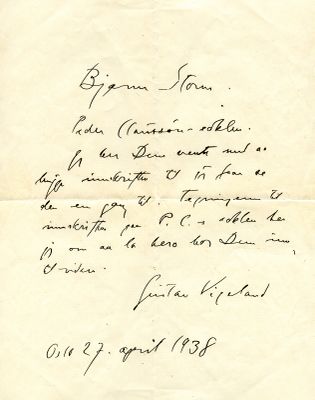 Bjarne Storm.
Peder Claussøn-sokkelen.
Jeg ber Dem vente med at
hugge innskriften til jeg faar se
den en gang til. Tegningen til
innskriften paa P. C.-s sokkelen ber
jeg om aa la bero hos Dem inn-
til videre.
Gustav Vigeland
Oslo 27. april 1938